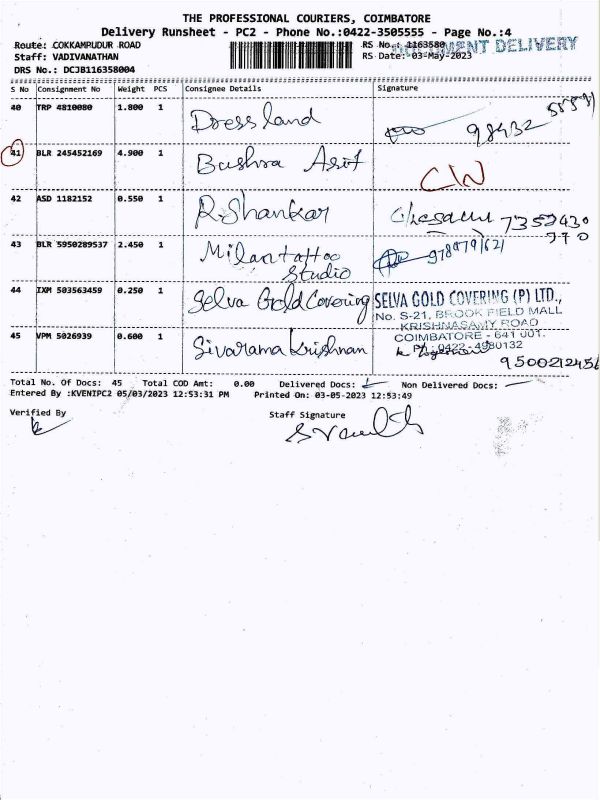 THE PROFESSIONAL COURIERS, COIMBATORE
Delivery Runsheet - PC2 - Phone No.:0422-3505555 - Page No.:4
Route: COKKAMPUDUR ROAD RS No.: 1163580 DOCUMENT DELIVERY
Staff: VADIVANATHAN RS Date: 03-May-2023
DRS No.: DCJB116358004
S No Consignment No Weight PCS Consignee Details Signature
40 TRP 4810080 1.800 1 Dress land 98432
41 BLR 245452169 4.900 1 Bushra Asif
42 ASD 1182152 0.550 1 R.Shankar 7352430
770
43 BLR 5950289537 2.450 1 Milantattoo
Studio
44 IXM 503563459 0.250 1 Selva Gold Covering SELVA GOLD COVERING (P) LTD.,
No. S-21, BROOK FIELD MALL
KRISHNASAMY ROAD
COIMBATORE - 641 001.
45 VPM 5026939 0.600 1 Sivarama Krishnan PH: 0422 - 4980132
9500212456
Total No. Of Docs: 45 Total COD Amt: 0.00 Delivered Docs: Non Delivered Docs:
Entered By :KVENIPC2 05/03/2023 12:53:31 PM Printed On: 03-05-2023 12:53:49
Verified By Staff Signature